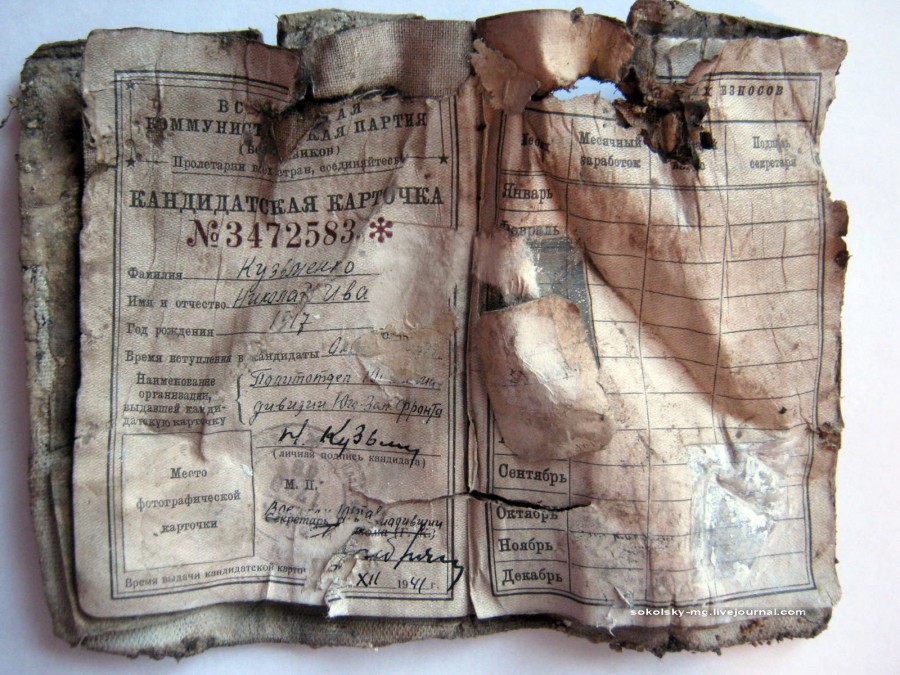 ВС АЯ
КОММУНИСТ КАЯ ПАРТИЯ
Пролетарии стран, соединяйтесь
КАНДИДАТСКАЯ КАРТОЧКА
№3472583 *
Фамилия Кузьменко
Имя и отчество Николай Ива
Год рождения 1917
Время вступления в кандидаты
Наименование
организации,
выдавшей канди-
датскую карточку
Политотдел
дивизии Юго-Зап фронта
Н. Кузьм
(личная подпись кандидата)
Место
фотографической
карточки
М. П.
Секретарь
Время выдачи кандидатской карто XII 1941 г.
ВЗНОСОВ
Месячный
заработок
Подпись
секретаря
Январь
Февраль
Сентябрь
Октябрь
Ноябрь
Декабрь
sokolsky-mg.livejournal.com